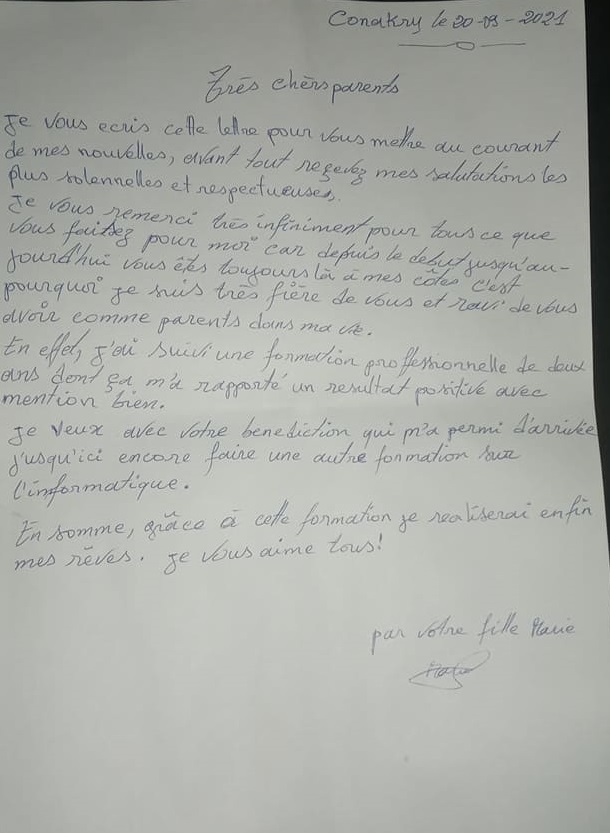 Conakry le 20-09-2021
Très chèrs parents
Je vous ecris cette lettre pour vous mettre au courant
de mes nouvelles, avant tout reçevez mes salutations les
plus solennelles et respectueuses.
Je vous remerci très infiniment pour tous ce que
vous faitez pour moi car depuis le debut jusqu'au-
jourd'hui vous êtes toujours là à mes côtés c'est
pourquoi je suis très fière de vous et ravi de vous
avoir comme parents dans ma vie.
En effet, j'ai suivi une formation proffessionnelle de deux
ans dont ça m'a rapporté un resultat positive avec
mention bien.
Je veux avec votre benediction qui m'a permi d'arrivée
jusqu'ici encore faire une autre formation sur
l'informatique.
En somme, grâce à cette formation je realiserai enfin
mes rêves. Je vous aime tous!
par votre fille Marie